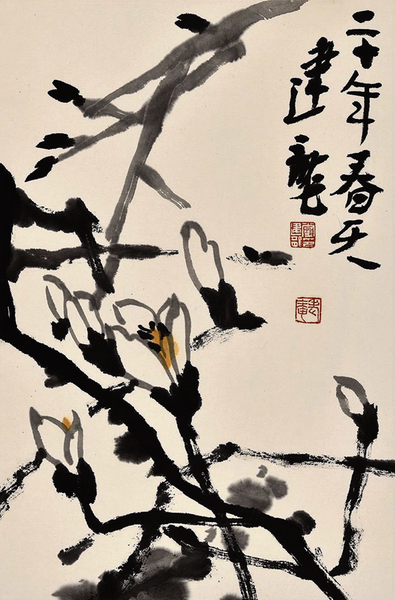 二十年春天
建龍